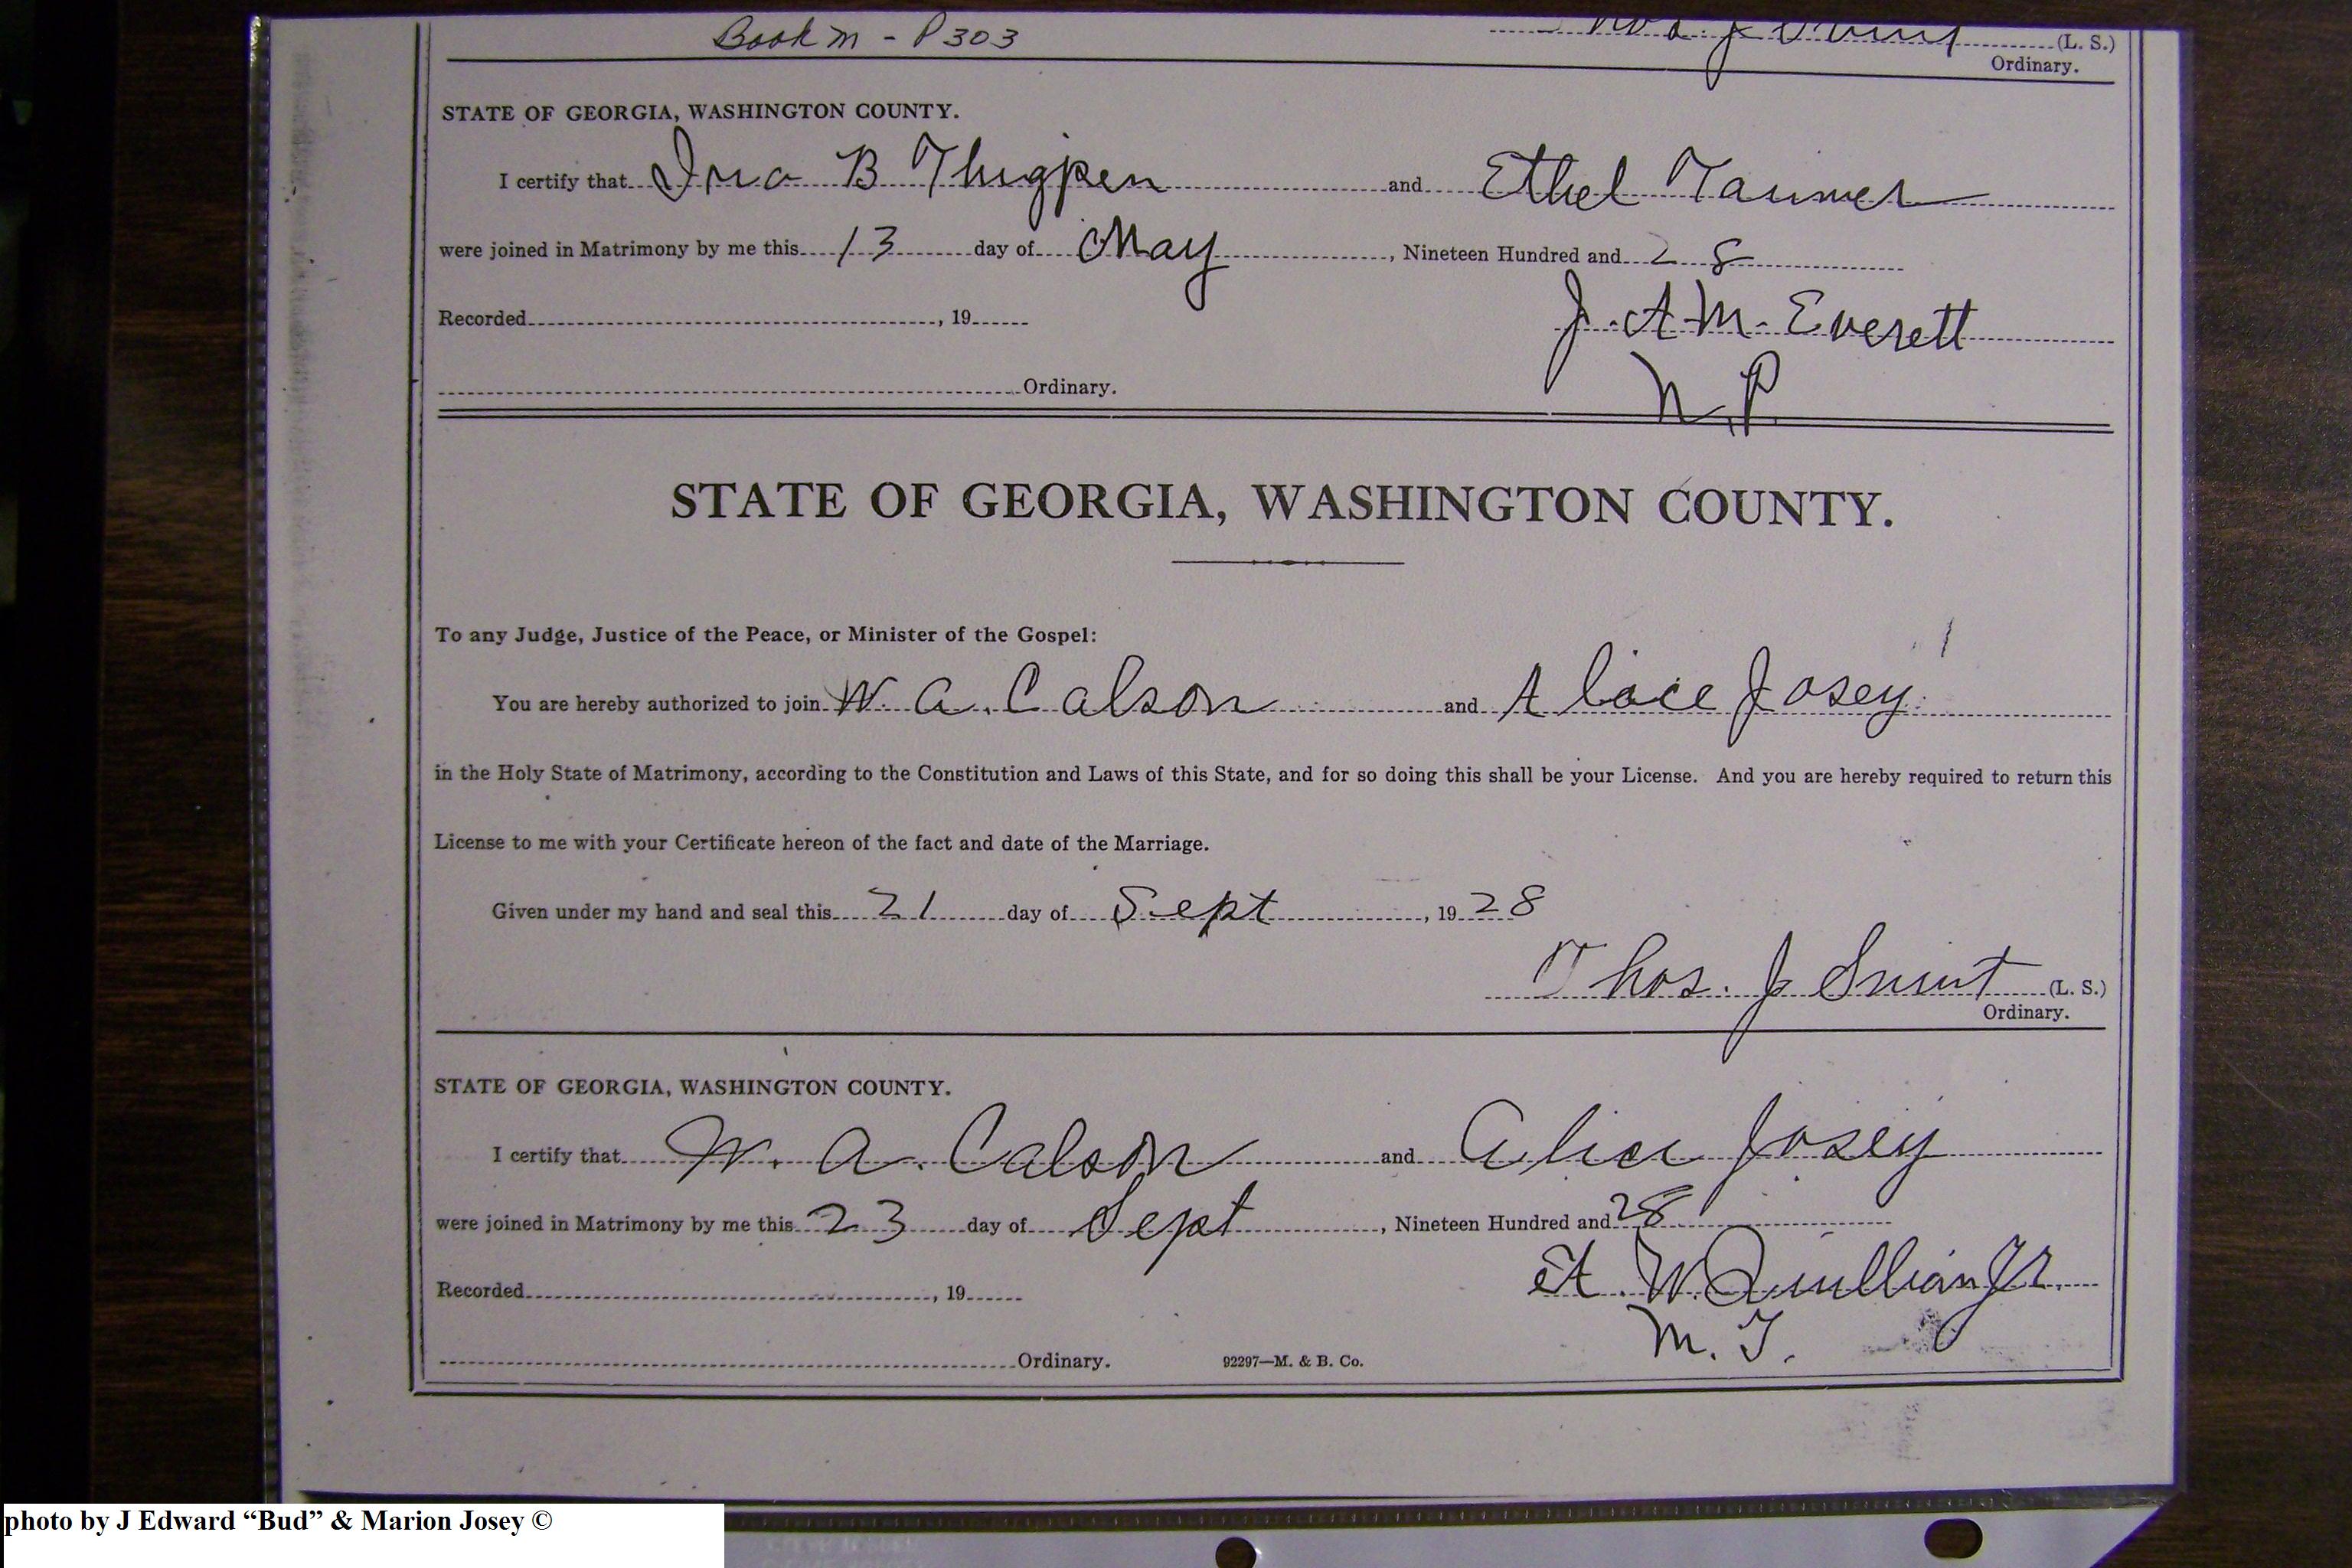 Book M - P 303
Thos. J (L. S.)
Ordinary.
STATE OF GEORGIA, WASHINGTON COUNTY.
I certify that Ira B Thigpen and Ethel Tanner
were joined in Matrimony by me this 13 day of May, Nineteen Hundred and 28
Recorded, 19
J. A. M. Everett
Ordinary.
N.P.
STATE OF GEORGIA, WASHINGTON COUNTY.
To any Judge, Justice of the Peace, or Minister of the Gospel:
You are hereby authorized to join W. A. Calson and Alice Josey
in the Holy State of Matrimony, according to the Constitution and Laws of this State, and for so doing this shall be your License. And you are hereby required to return this
License to me with your Certificate hereon of the fact and date of the Marriage.
Given under my hand and seal this 21 day of Sept, 1928
Thos. J Swint (L. S.)
Ordinary.
STATE OF GEORGIA, WASHINGTON COUNTY.
I certify that W. A. Calson and Alice Josey
were joined in Matrimony by me this 23 day of Sept, Nineteen Hundred and 28
Recorded, 19
W. Quillian Jr.
M.
Ordinary. 92297—M. & B. Co.
photo by J Edward “Bud” & Marion Josey ©